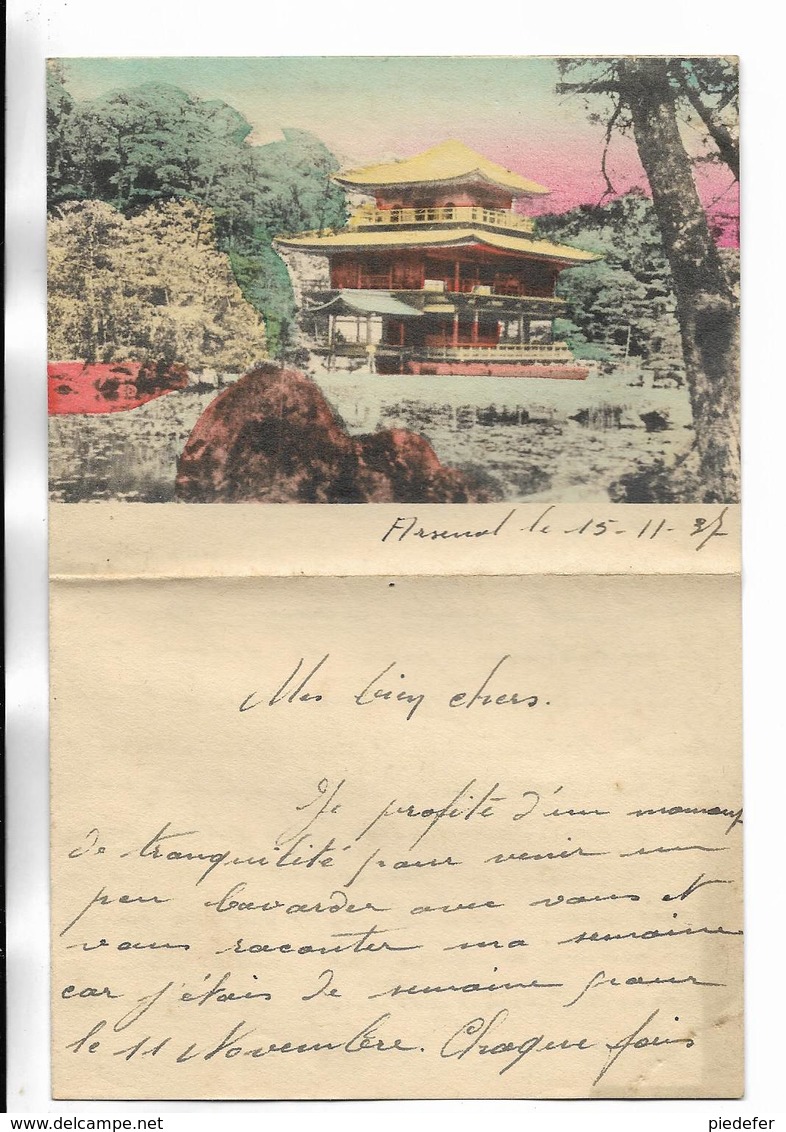 Arsenal le 15-11-37
Mes bien chers.
Je profite d'un moment
de tranquilité pour venir un
peu bavarder avec vous et
vous raconter ma semaine
car j'étais de semaine pour
le 11 Novembre. Chaque fois
delcampe.net
piedefer